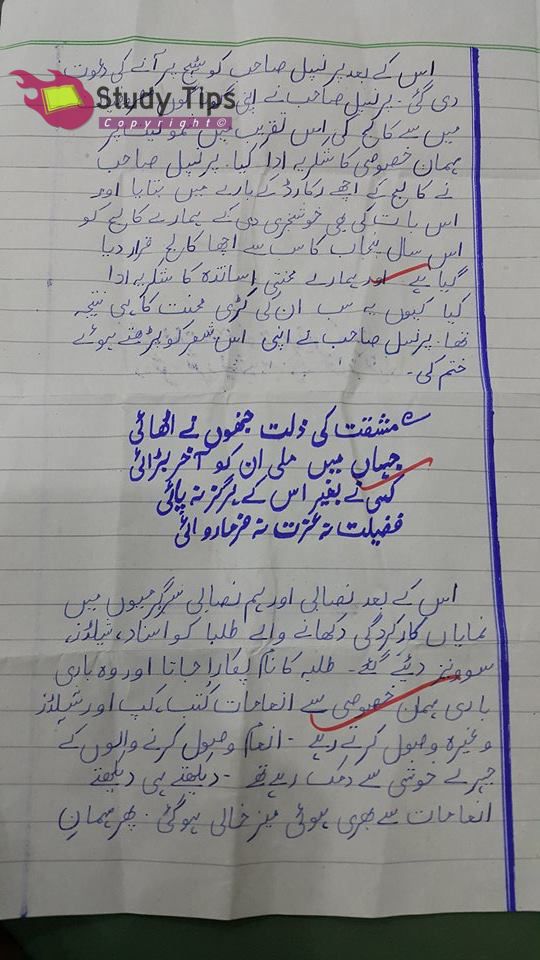 اس کے بعد پرنسپل صاحب کو سٹیج پر آنے کی دعوت
Study Tips
Copyright©
دی گئی۔ پرنسپل صاحب نے اپنی
میں سے کالج کی اس تقریب میں
مہمان خصوصی کا شکریہ ادا کیا۔ پرنسپل صاحب
نے کالج کے اچھے رکارڈ کے بارے میں بتایا اور
اس بات کی بھی خوشخبری دی کے ہمارے کالج کو
اس سال پنجاب کا سب سے اچھا کالج قرار دیا
گیا ہے اور ہمارے محنتی اساتذہ کا شکریہ ادا
کیا کیوں یہ سب ان کی کڑی محنت کا ہی نتیجہ
تھا۔ پرنسپل صاحب نے اپنی اس شعر کو پڑھتے ہوئے
ختم کی۔
مشقت کی ذلت جنھوں نے اٹھائی
جہاں میں ملی ان کو آخر بڑائی
کسی نے بغیر اس کے ہرگز نہ پائی
فضیلت نہ عزت نہ فرماروائی
اس کے بعد نصابی اور ہم نصابی سرگرمیوں میں
نمایاں کارکردگی دکھانے والے طلبا کو اسناد، شیلڈز،
سوونیز دیئے گئے۔ طلبہ کا نام پکارا جاتا اور وہ باری
باری مہمان خصوصی سے انعامات کتب، کپ اور شیلڈز
وغیرہ وصول کرتے رہے۔ انعام وصول کرنے والوں کے
چہرے خوشی سے دمک رہے تھے۔ دیکھتے ہی دیکھتے
انعامات سے بھری ہوئی میز خالی ہوگئی۔ پھر مہمانِ